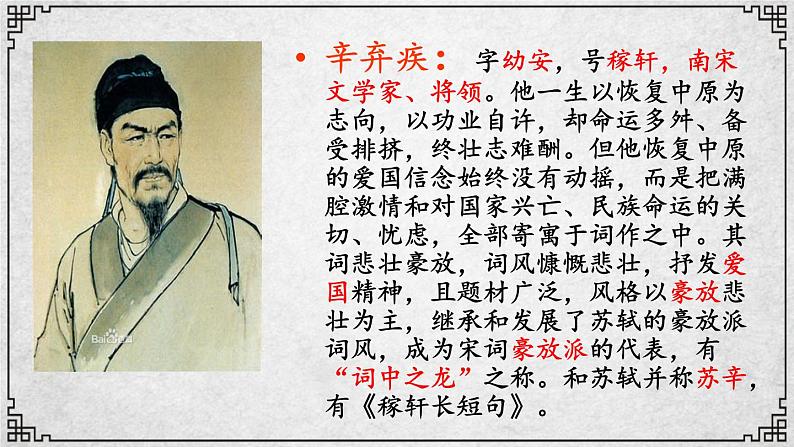 • 辛弃疾：字幼安，号稼轩，南宋
文学家、将领。他一生以恢复中原为
志向，以功业自许，却命运多舛、备
受排挤，终壮志难酬。但他恢复中原
的爱国信念始终没有动摇，而是把满
腔激情和对国家兴亡、民族命运的关
切、忧虑，全部寄寓于词作之中。其
词悲壮豪放，词风慷慨悲壮，抒发爱
国精神，且题材广泛，风格以豪放悲
壮为主，继承和发展了苏轼的豪放派
词风，成为宋词豪放派的代表，有
“词中之龙”之称。和苏轼并称苏辛，
有《稼轩长短句》。
Bai百科